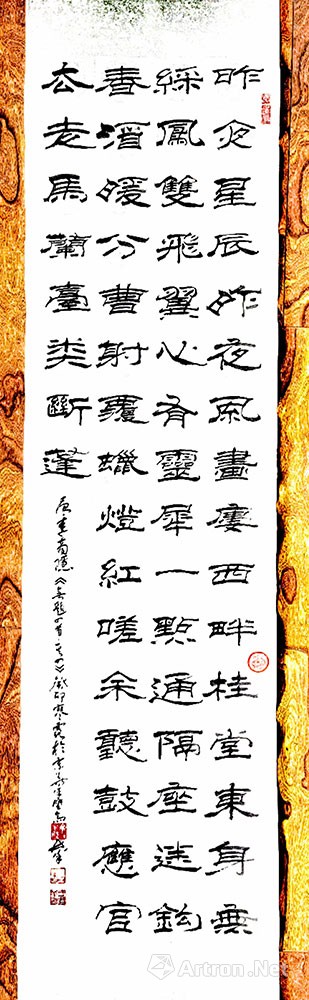 昨夜星辰昨夜風畫廔西畔桂堂東身無
綵鳳雙飛翼心有靈犀一點通隔座送鈎
春酒暖分曹射覆蠟燈紅嗟余聽鼓應官
去走馬蘭臺类斷蓬
唐李商隱
Artron.Net